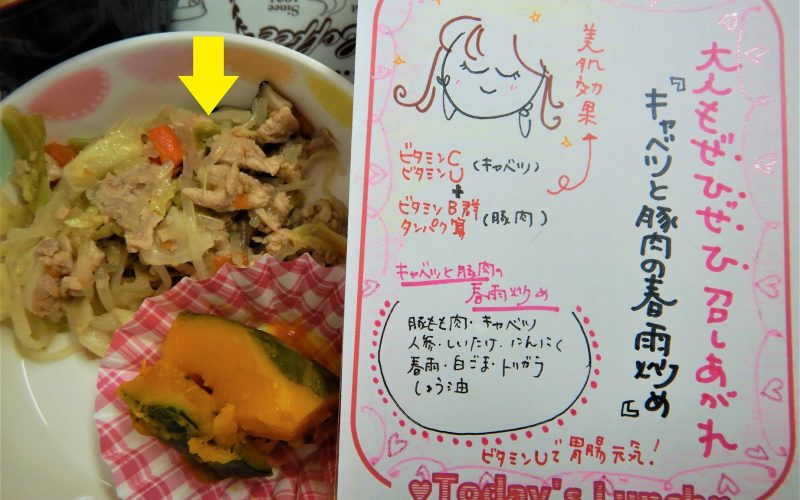 Since
1984
Coffee
大人もぜひぜひ召しあがれ
『キャベツと豚肉の春雨炒め』
美肌効果
ビタミンC (キャベツ)
ビタミンU
+
ビタミンB群 (豚肉)
タンパク質
キャベツと豚肉の
春雨炒め
豚もも肉・キャベツ
人参・しいたけ・にんにく
春雨・白ごま・トリガラ
しょう油
ビタミンUで胃腸元気!
♥Today's Lunch